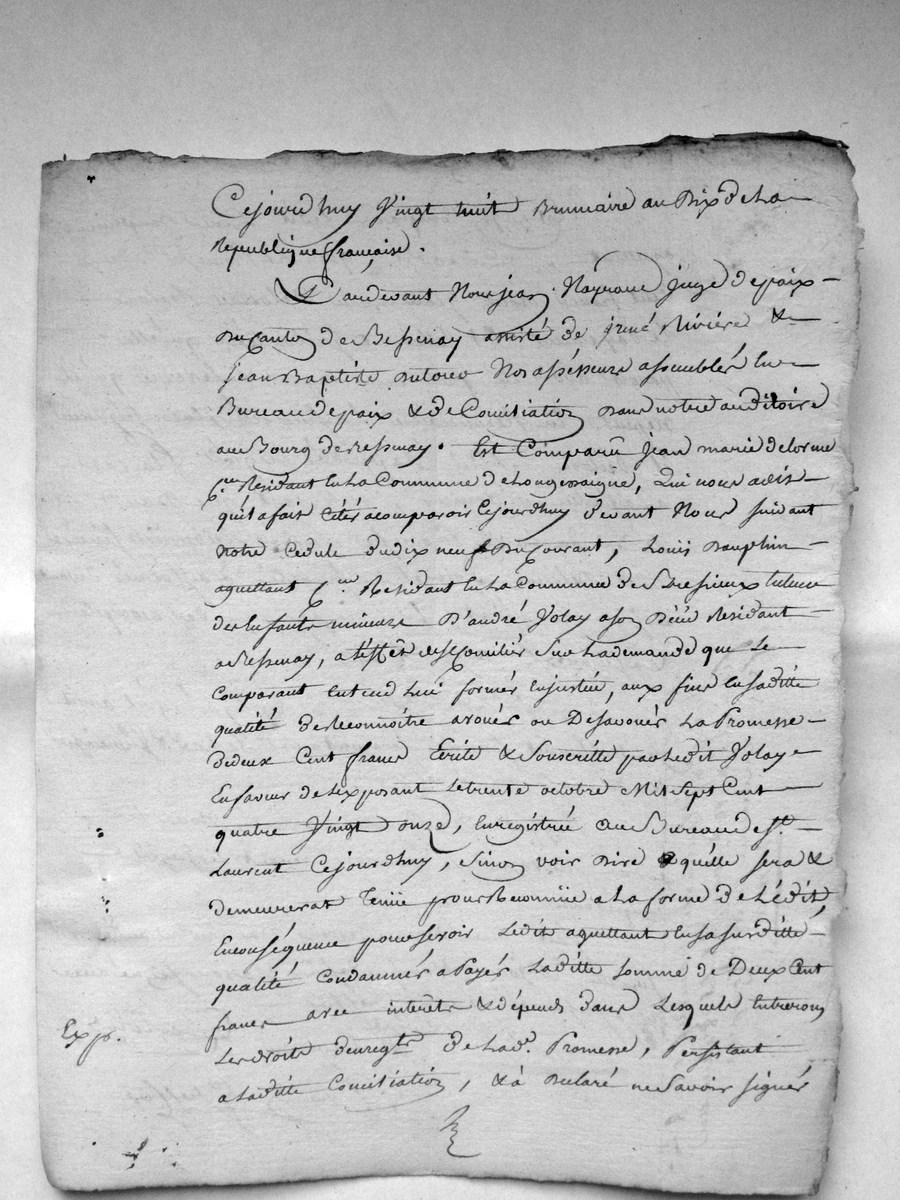 Cejourdhuy Vingt huit Brumaire an Dix de La
Republique française.
Pardevant Nous jean Nayrand juge de paix
Du Canton de Bessenay assisté de irené Rivière &
jean Baptiste Nos assésseurs assemblés en
Bureau de paix & de Conciliation Dans notre auditoire
au Bourg de Bessenay. Est Comparû jean marie delorme
c.en Residant en La Commune de Longessaigne, Qui nous a dit
qu'il a fait citér a comparoir Cejourdhuy devant Nous suivant
notre cedule du dix neuf Du Courant, Louis Dauphin
aguettant C.en Residant en La Commune de tuteur
des Enfants mineurs D'andré Volay a son Déçé Residant
a Bessenay, a l'éffèt de se Conciliér Sur La demande que Le
comparant entend Lui formér en justice, aux fins en sa ditte
qualité de Reconnoitre avouér ou Desavouér La Promesse
de deux Cent francs Ecrite & Souscritte par Ledit Volay
En faveur de Lexposant Le trente octobre Mil Sept Cent
quatre Vingt onze, Enregistrée au Bureau de St.
Laurent Cejourdhuy, Sinon voir Dire quélle sera &
demeurerat Tenüe pour Reconnüe a La forme de L'édit,
En conséquence pour se voir Ledit aguettant en sa surditte
qualité Condamnér a Payér Laditte Somme de Deux Cent
francs avec interets & dépends dans Lesquels Entreront
Les droits denregt. de Lade. Promesse, Persistant
a Laditte Conciliation, & à Declaré ne Savoir signér
Exp.